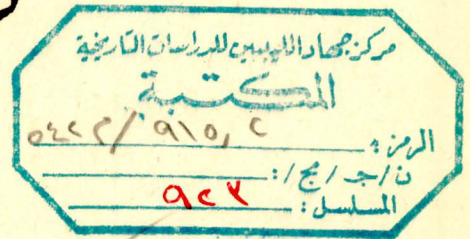 مركز جهاد الليبيين للدراسات التاريخية
المكتبة
الرمز: ٩١٥,٢ / م ٥٤٢
ن / جـ / مج / :
المسلسل : ٩٢٣